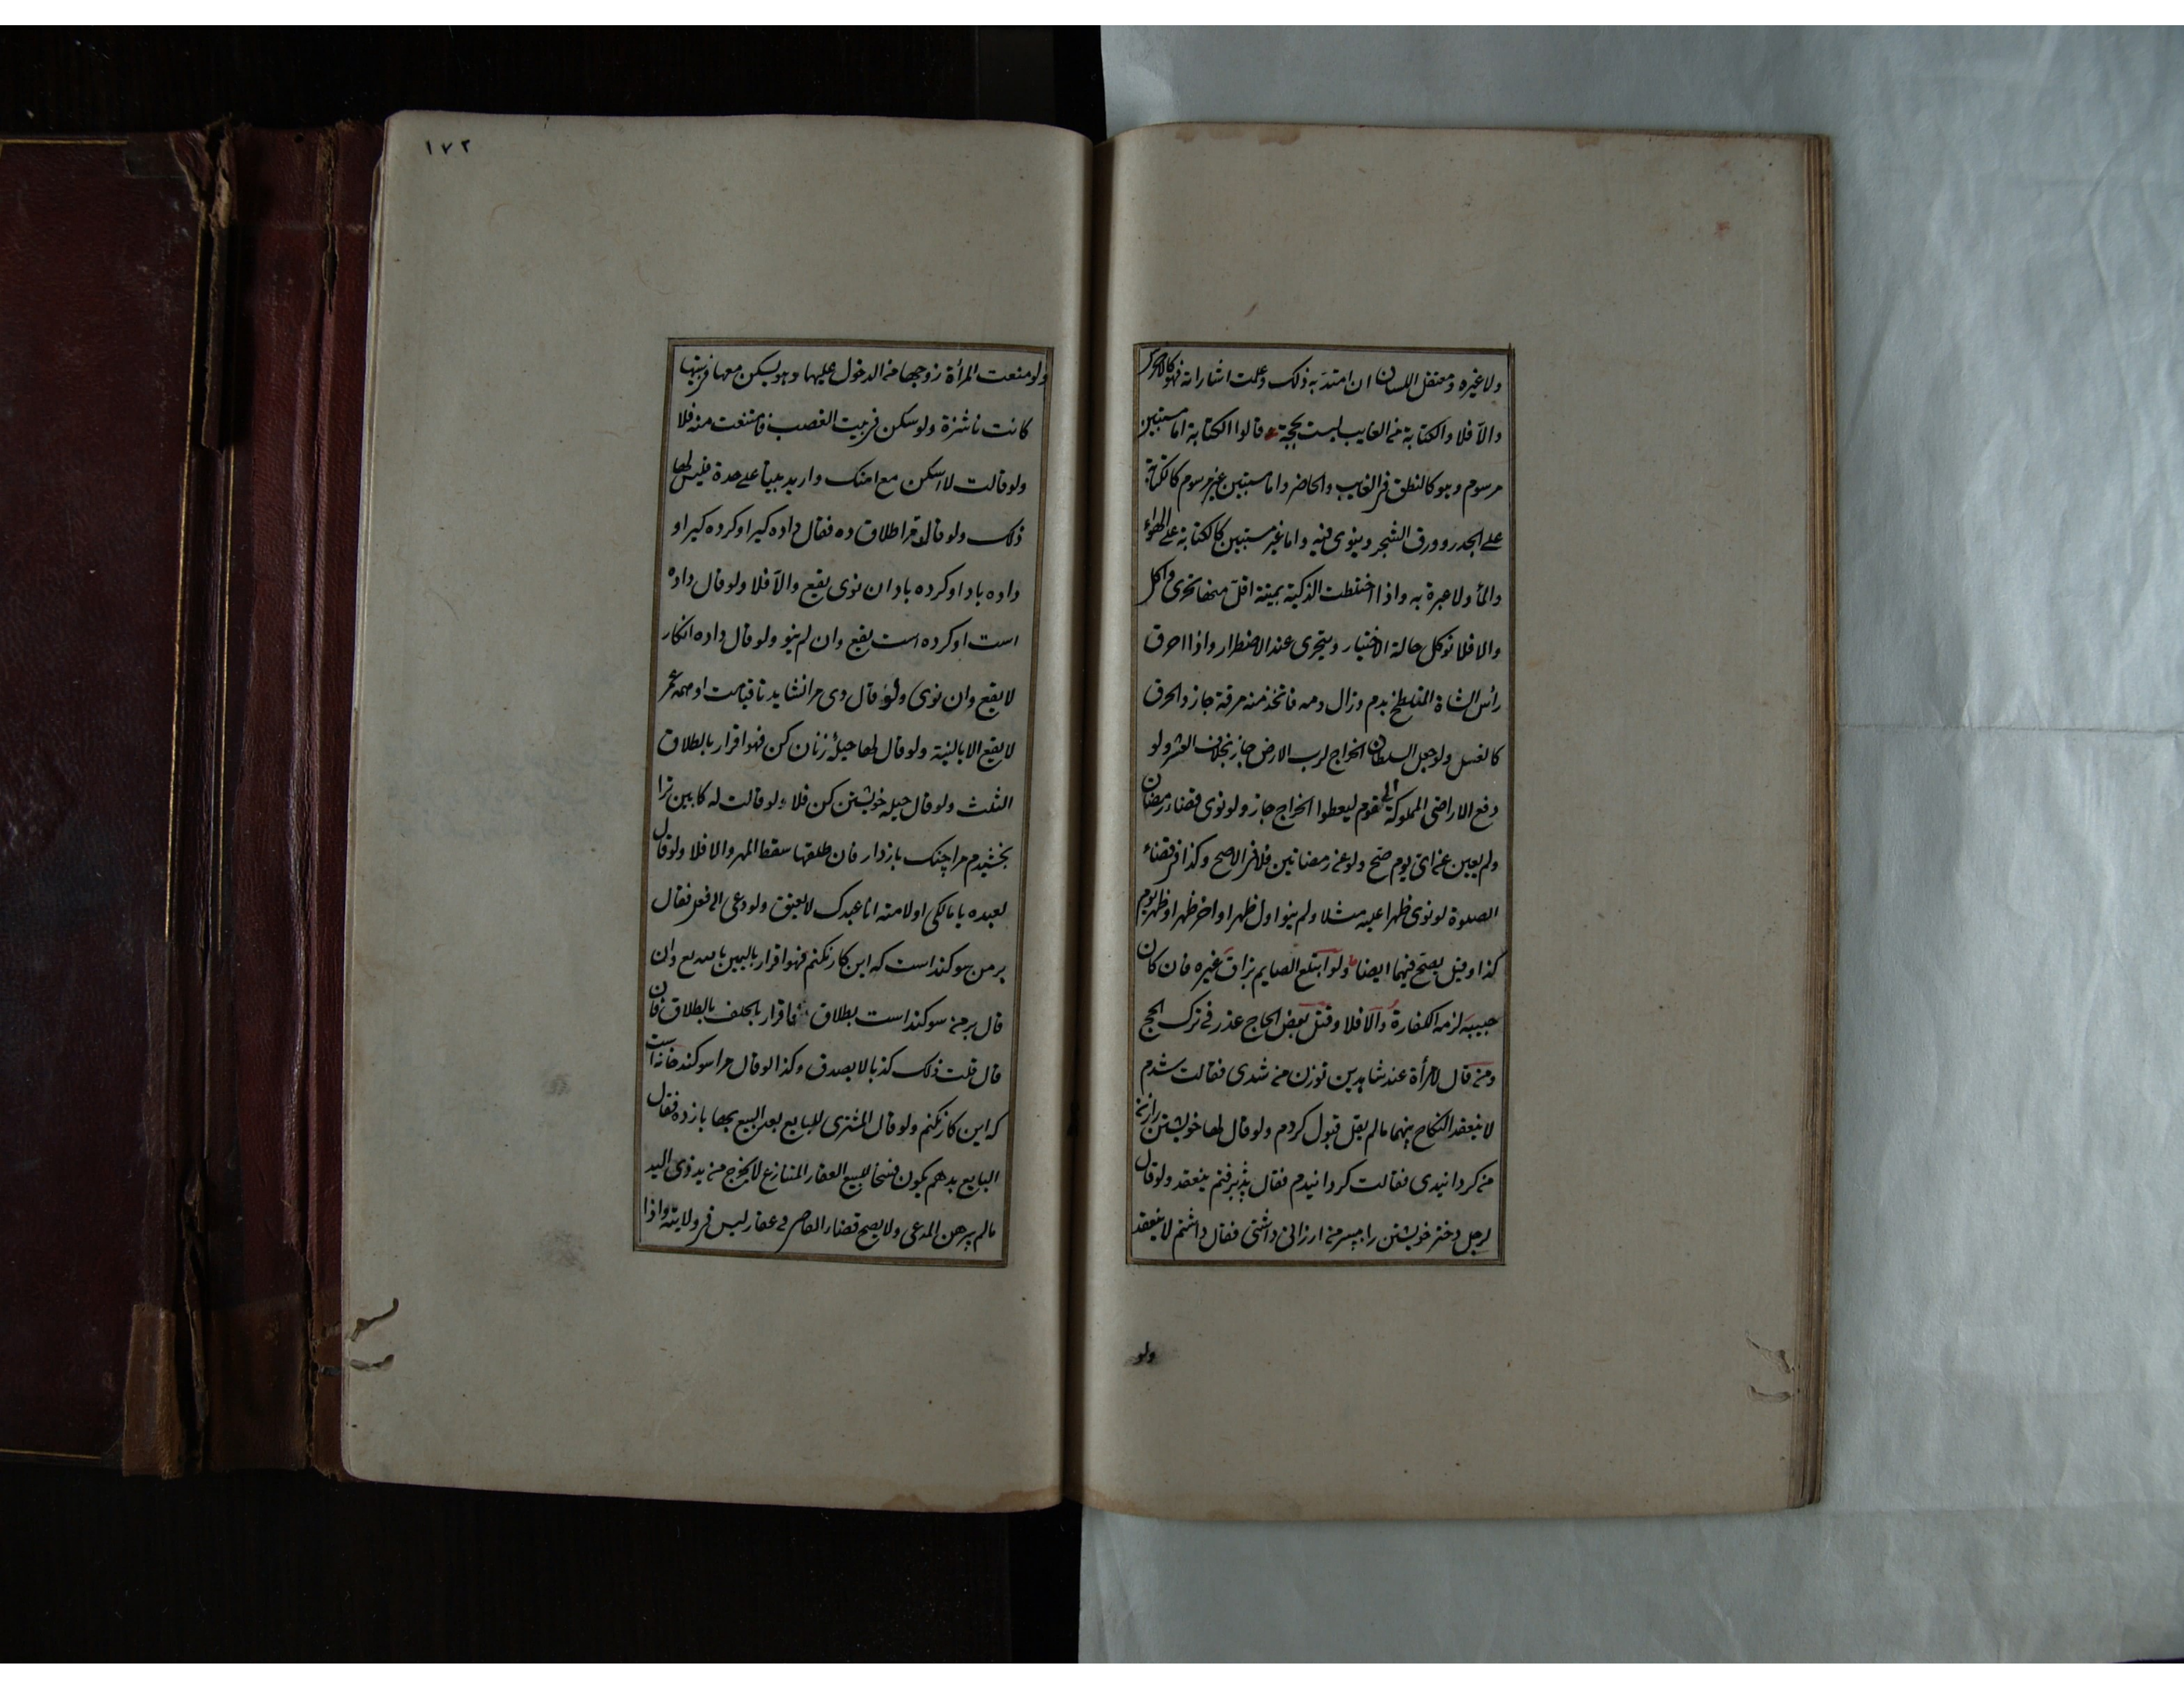 ولا غيره ومعتقل اللسان ان امتد به ذلك وعلمت اشاراته فهو كالاخرس
والا فلا والكتابة من الغايب ليست بحجة قالوا الكتابة اما مستبين
مرسوم وهو كالنطق في الغايب والحاضر واما مستبين غير مرسوم كالكتابة
على الجدر وورق الشجر وينوى فيه واما غير مستبين كالكتابة على الهواء
والماء ولا عبرة به واذا اختلطت الذكية بميتة اقل منها تحرى واكل
والا فلا توكل حالة الاختيار ويتحرى عند الاضطرار واذا احرق
رأس الشاة المتلطخ بدم وزال دمه فاتخذ منه مرقة جاز والحرق
كالغسل ولو جعل السلطان الخراج لرب الارض جاز بخلاف العشر ولو
دفع الاراضى المملوكة الى قوم ليعطوا الخراج جاز ولو نوى قضاء رمضان
ولم يعين عن اى يوم صح ولو عن رمضانين فلا في الاصح وكذا في قضاء
الصلوة لو نوى ظهرا عليه مثلا ولم ينو اول ظهر او اخر ظهر او ظهر يوم
كذا وقيل يصح فيهما ايضا ولو ابتلع الصايم بزاق غيره فان كان
حبيبه لزمه الكفارة والا فلا وقتل بعض الحاج عذر في ترك الحج
ومن قال لامرأة عند شاهدين تو زن من شدى فقالت شدم
لا ينعقد النكاح بينهما مالم يقل قبول كردم ولو قال لها خويشتن را زن
من كردانيدى فقالت كردانيدم فقال پذيرفتم ينعقد ولو قال
لرجل دختر خويشتن را بپسر من ارزانى داشتى فقال داشتم لا ينعقد
ولو
١٧٢
ولو منعت المرأة زوجها من الدخول عليها وهو يسكن معها في بيتها
كانت ناشزة ولو سكن في بيت الغصب فامتنعت منه فلا
ولو قالت لا اسكن مع امتك واريد بيتا على حدة فليس لها
ذلك ولو قال مرا طلاق ده فقال داده كير او كرده كير او
داده باد او كرده باد ان نوى يقع والا فلا ولو قال داده
است او كرده است يقع وان لم ينو ولو قال داده انكار
لا يقع وان نوى ولو قال وى مرا نشايد تا قيامت او همه عمر
لا يقع الا بالنية ولو قال لها حيله زنان كن فهو اقرار بالطلاق
الثلث ولو قال حيله خويشتن كن فلا ولو قالت له كابين ترا
بخشيدم مرا چنك باز دار فان طلقها سقط المهر والا فلا ولو قال
لعبده يا مالكى او لامته انا عبدك لا يعتق ولو دعى الى فعل فقال
بر من سوكند است كه اين كار نكنم فهو اقرار باليمين بالله تع وان
قال بر من سوكند است بطلاق فاقرار بالحلف بالطلاق فان
قال قلت ذلك كذبا لا يصدق وكذا لو قال مرا سوكند خانه است
كه اين كار نكنم ولو قال المشترى للبايع بعد البيع بها باز ده فقال
البايع بدهم يكون فسخا للبيع العقار المتنازع لا يخرج من يد ذى اليد
مالم يبرهن المدعى ولا يصح قضاء القاضى في عقار ليس في ولايته واذا